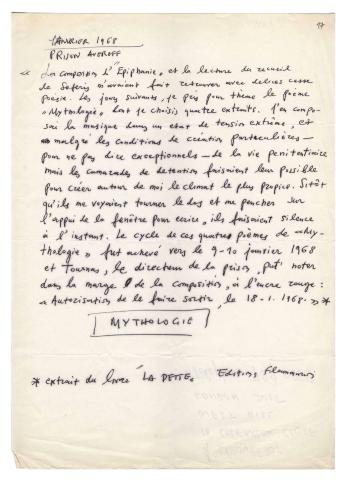 17
JANVIER 1968
PRISON AVEROFF
« La composition d'"Epiphanie" et la lecture du recueil
de Séféris m'avaient fait retrouver avec délices cette
poésie. Les jours suivants, je pris pour thème le poème
« Mythologie » dont je choisis quatre extraits. J'en compo-
sai la musique dans un état de tension extrême, et
malgré les conditions de création particulières —
pour ne pas dire exceptionnels — de la vie pénitentiaire
mais les camarades de détention faisaient leur possible
pour créer autour de moi le climat le plus propice. Sitôt
qu'ils me voyaient tourner le dos et me pencher sur
l'appui de la fenêtre pour écrire, ils faisaient silence
à l'instant. Le cycle de ces quatre poèmes de « My-
thologie » fut achevé vers le 9-10 janvier 1968
et Tournas, le directeur de la prison, put noter
dans la marge de la composition, à l'encre rouge :
« Autorisation de le faire sortir, le 18.1.1968. » *
MYTHOLOGIE
* extrait du livre "LA DETTE" Editions Flammarion